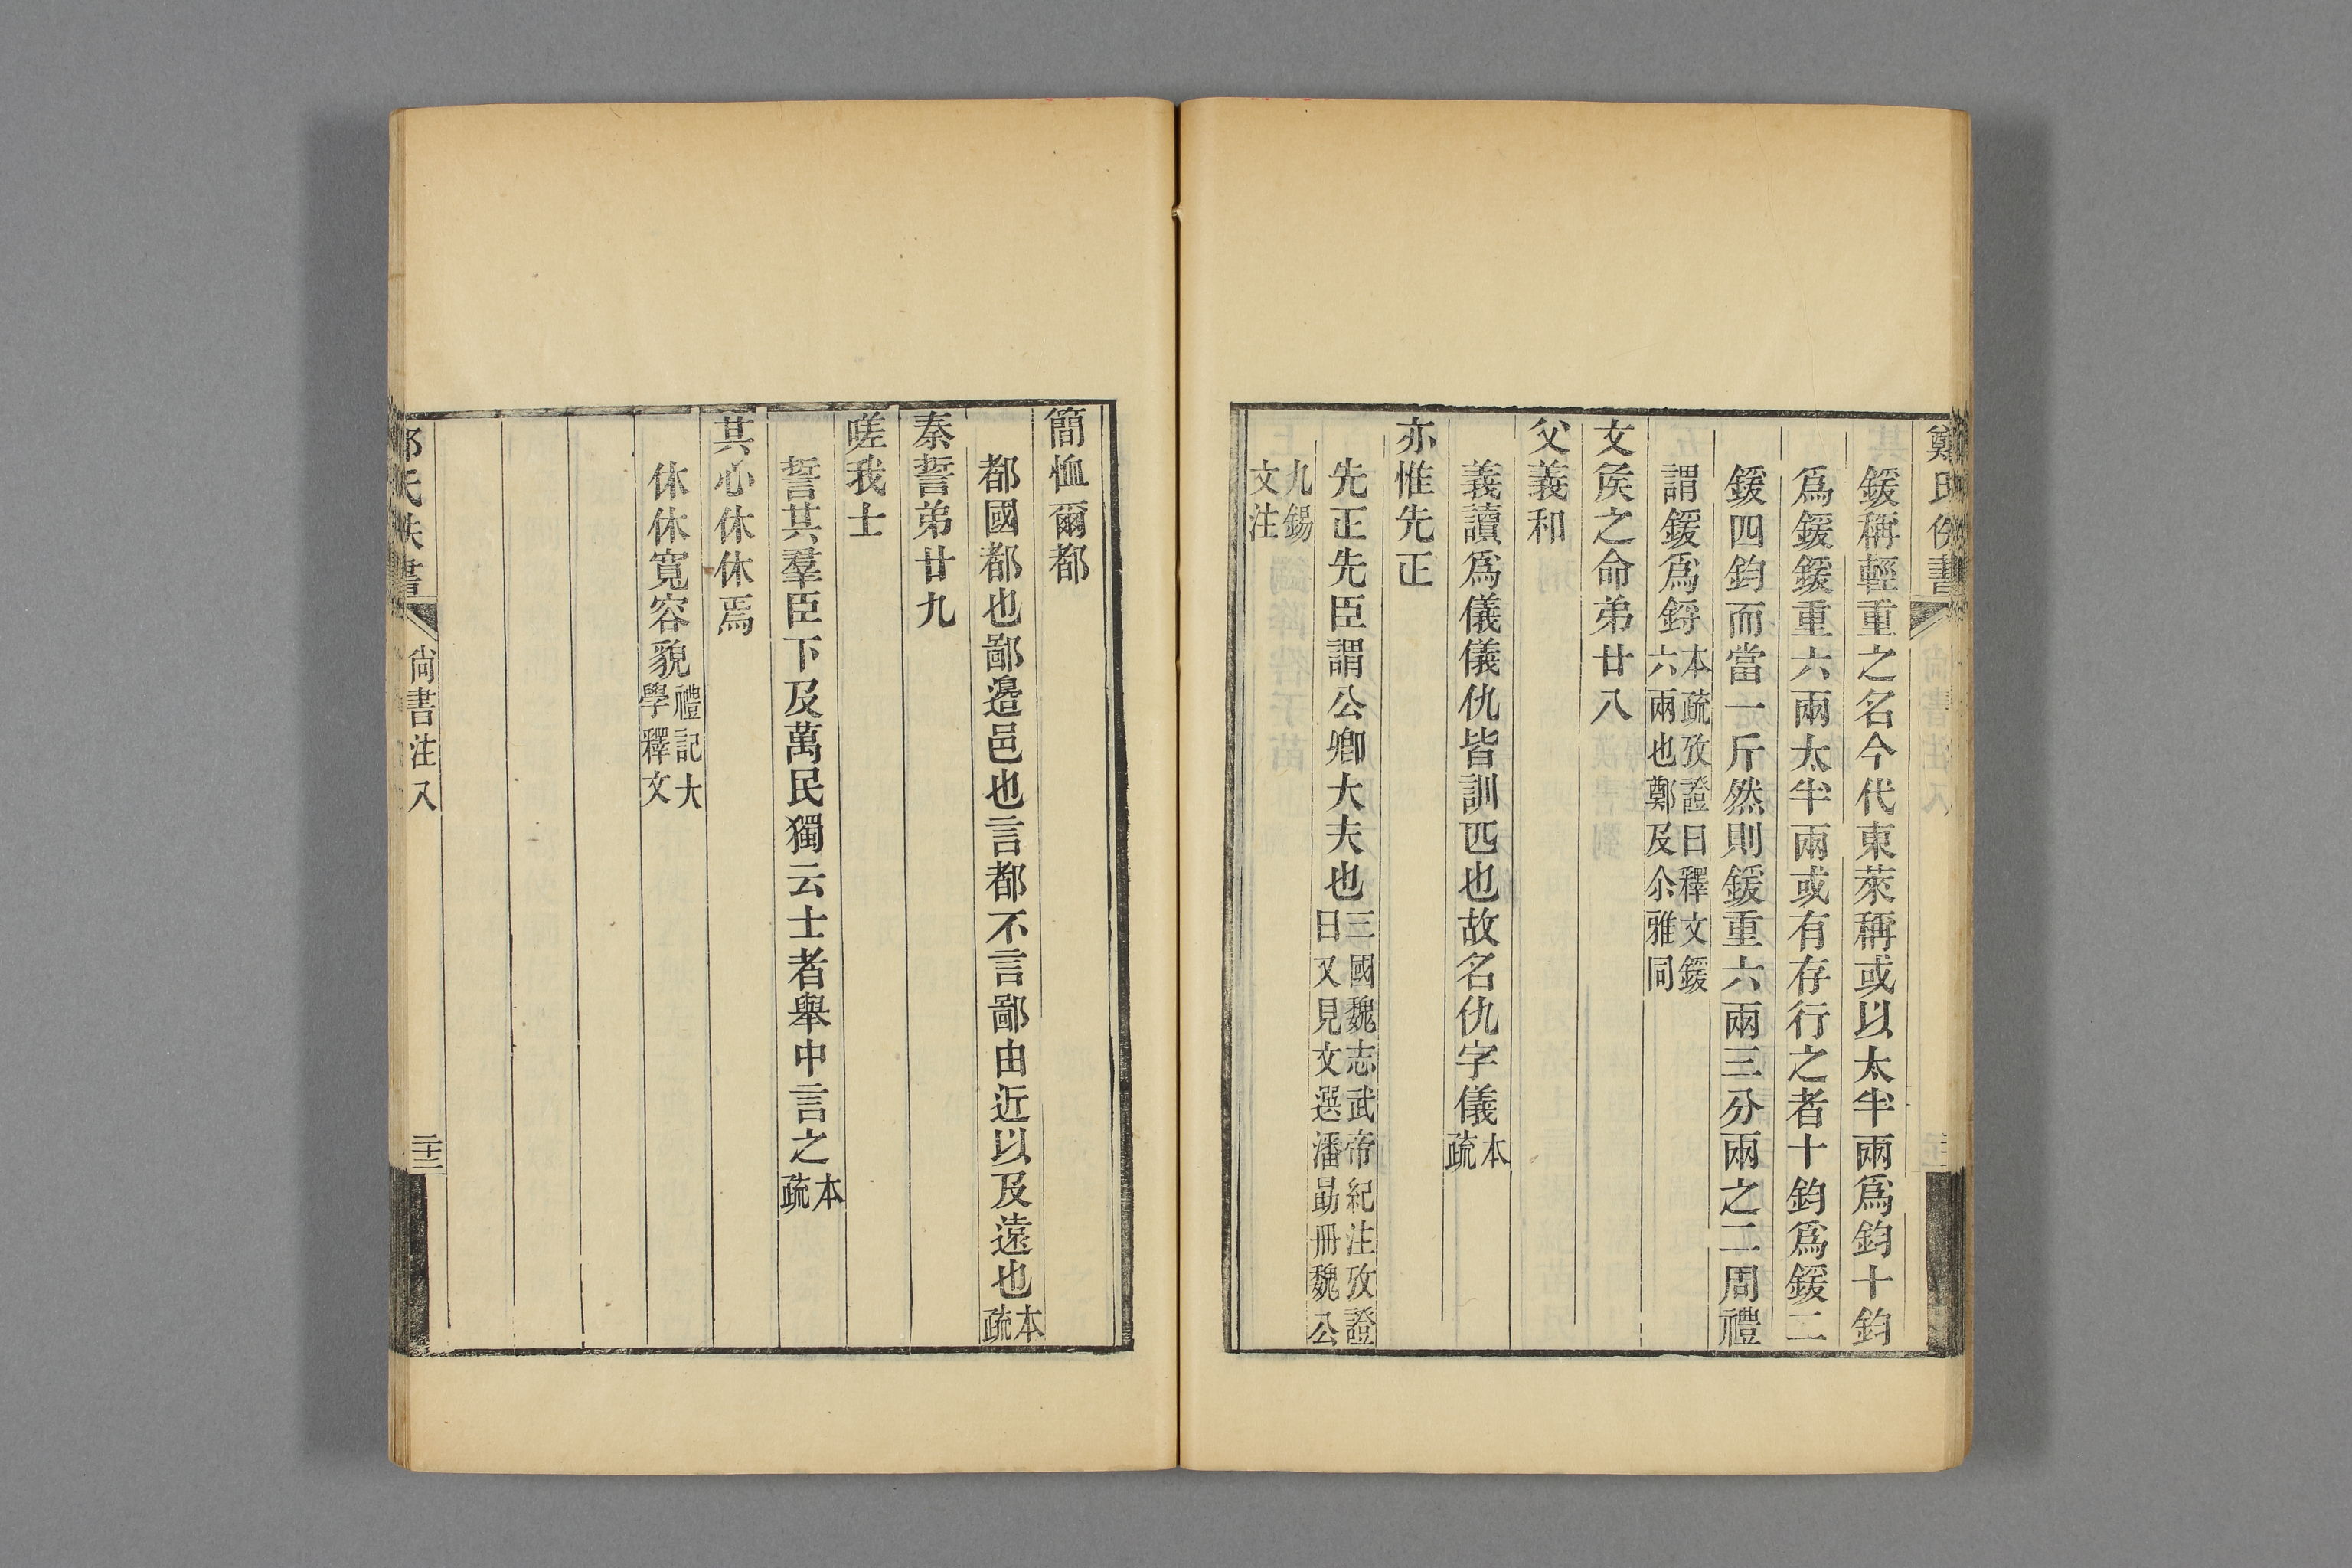 鄭氏佚書
鍰稱輕重之名今代東萊稱或以太半兩爲鈞十鈞
爲鍰鍰重六兩太半兩或有存行之者十鈞爲鍰二
鍰四鈞而當一斤然則鍰重六兩三分兩之二周禮
謂鍰爲鋝本疏攷證曰釋文鍰
六兩也鄭及尒雅同
文矦之命弟廿八
父義和
義讀爲儀儀仇皆訓匹也故名仇字儀本
疏
亦惟先正
先正先臣謂公卿大夫也三國魏志武帝紀注攷證
曰又見文選潘勗冊魏公
九錫
文注
簡恤爾都
都國都也鄙邉邑也言都不言鄙由近以及遠也本
疏
秦誓弟廿九
嗟我士
誓其羣臣下及萬民獨云士者舉中言之本
疏
其心休休焉
休休寬容貌禮記大
學釋文
鄭氏佚書
尙書注八
二十二